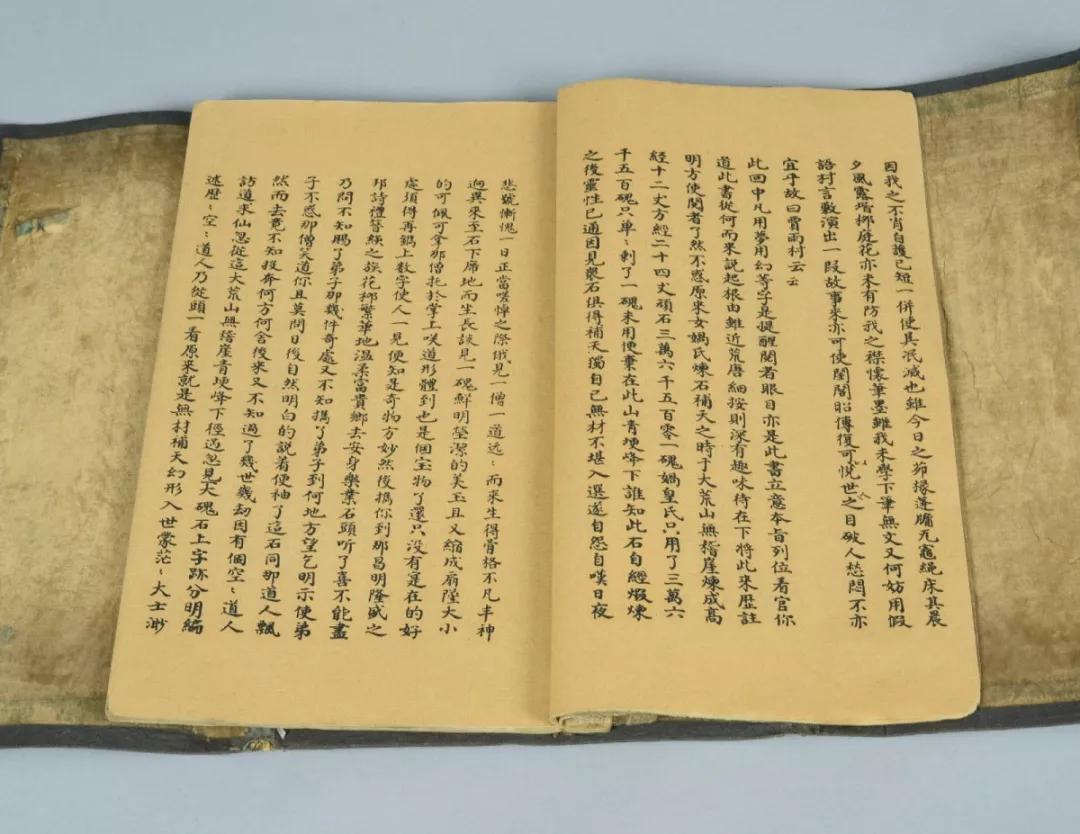 因我之不肖自護己短一併使其泯滅也雖今日之茆椽蓬牖瓦竈繩床其晨
夕風露堦栁庭花亦未有防我之襟懷筆墨雖我未學下筆無文又何妨用假
語村言敷演出一段故事來亦可使閨閣昭傳復可悅世之目破人愁悶不亦
宜乎故曰賈雨村云云
此回中凡用夢用幻等字是提醒閱者眼目亦是此書立意本旨列位看官你
道此書從何而來說起根由雖近荒唐細按則深有趣味待在下將此來歷註
明方使閱者了然不惑原來女媧氏煉石補天之時于大荒山無稽崖煉成高
經十二丈方經二十四丈頑石三萬六千五百零一磈媧皇氏只用了三萬六
千五百磈只单︰剩了一磈未用便棄在此山青埂峰下誰知此石自經煆煉
之後靈性已通因見衆石俱得補天獨自己無材不堪入選遂自怨自嘆日夜
悲號慚愧一日正當嗟悼之際俄見一僧一道远︰而來生得骨格不凡丰神
迥異來至石下席地而坐長談見一磈鮮明瑩潔的美玉且又縮成扇墜大小
的可佩可拿那僧托於掌上咲道形體到也是個宝物了還只沒有寔在的好
處須得再鐫上数字使人一見便知是奇物方妙然後擕你到那昌明隆盛之
邦詩禮簪纓之族花栁繁華地温柔富貴鄉去安身樂業石頭听了喜不能盡
乃問不知賜了弟子那幾件奇處又不知擕了弟子到何地方望乞明示使弟
子不惑那僧笑道你且莫問日後自然明白的說着便袖了這石同那道人飄
然而去竟不知投奔何方何舍後來又不知過了幾世幾刼因有個空︰道人
訪道求仙忽從這大荒山無稽崖青埂峰下徑過忽見大磈石上字跡分明編
述歷︰空︰道人乃從頭一看原來就是無材補天幻形入世蒙茫︰大士渺